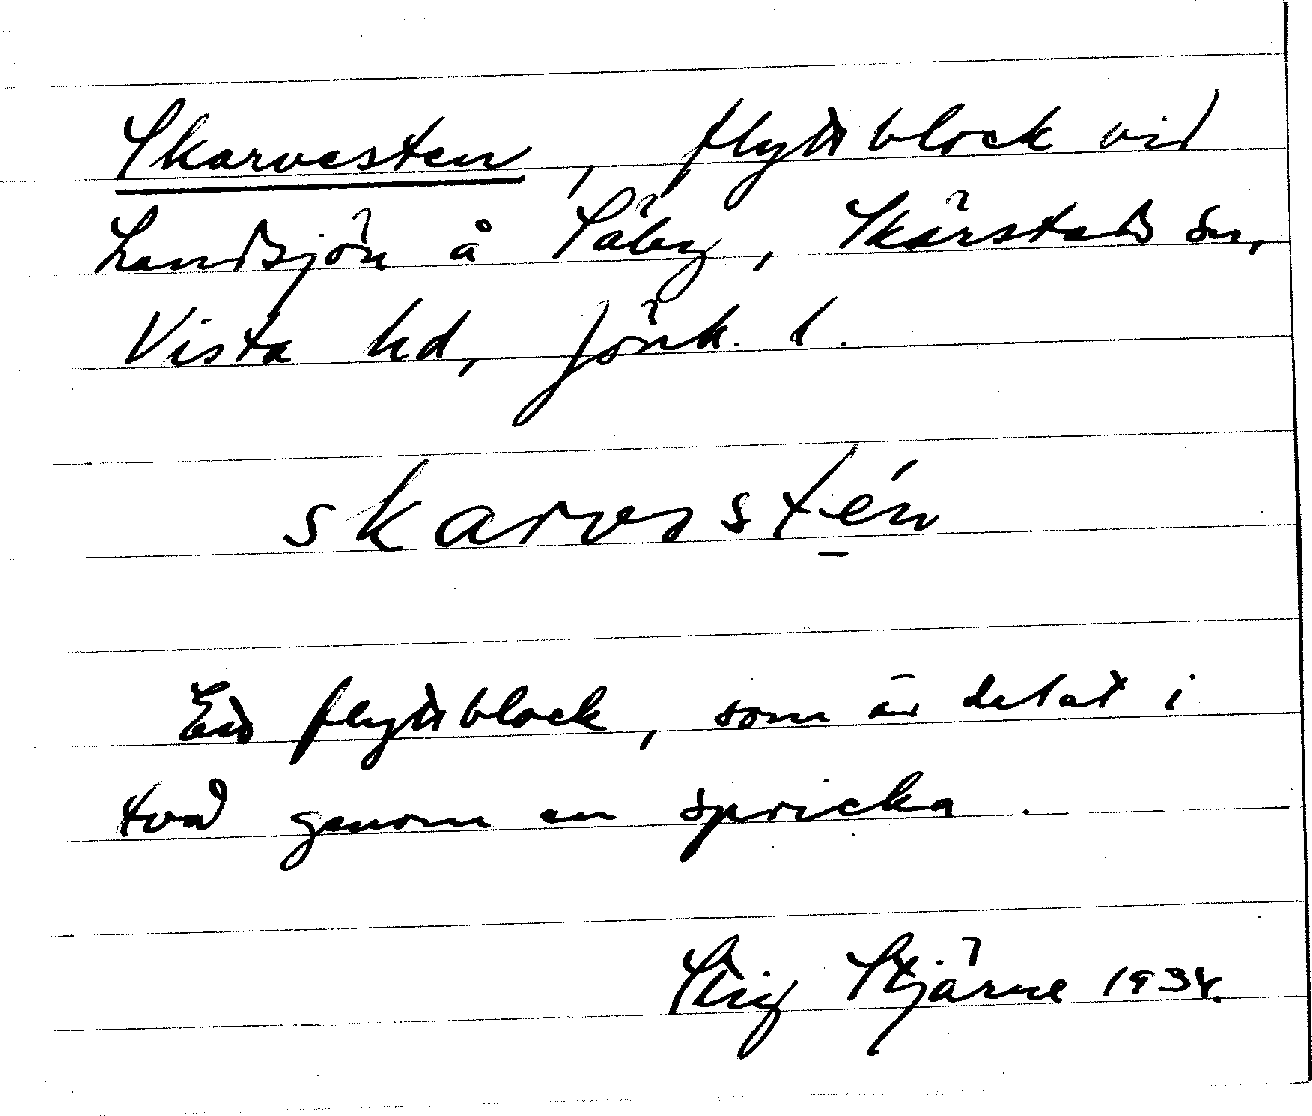 Skarvesten, flyttblock vid
Landsjön å Säby, Skärstads sn,
Vista hd, Jönk. l.
skarvɘstén
Ett flyttblock, som är delat i
två genom en spricka.
Stig Stjärne 1934.